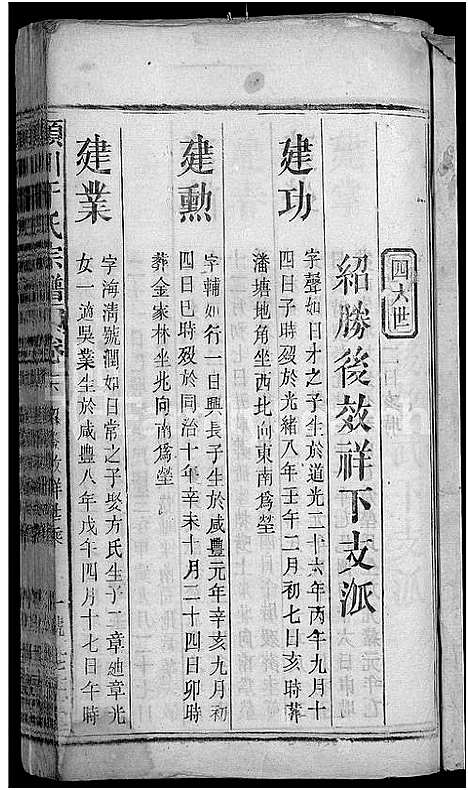 四大世
紹勝後效祥下支派
建功
字聲如日才之子生於道光二十六年丙午九月十
四日子時歿於光緒八年壬午二月初七日亥時葬
潘塘地角坐西北向東南爲塋
建勳
字輔如行一日興長子生於咸豐元年辛亥九月初
四日巳時歿於同治十年辛未十月二十四日卯時
葬金家林坐北向南爲塋
建業
字海清號潤如日常之子娶方氏生子二章迪章光
女一適吳業生於咸豐八年戊午四月十七日午時
川 氏宗譜 卷